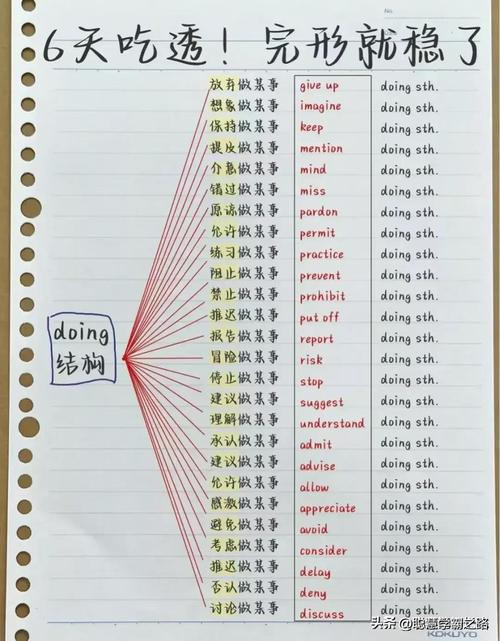 No.
6天吃透！完形就稳了
放弃做某事 give up doing sth.
想象做某事 imagine doing sth.
保持做某事 keep doing sth.
提及做某事 mention doing sth.
介意做某事 mind doing sth.
错过做某事 miss doing sth.
原谅做某事 pardon doing sth.
允许做某事 permit doing sth.
练习做某事 practice doing sth.
阻止做某事 prevent doing sth.
禁止做某事 prohibit doing sth.
推迟做某事 put off doing sth.
doing
结构
报告做某事 report doing sth.
冒险做某事 risk doing sth.
停止做某事 stop doing sth.
建议做某事 suggest doing sth.
理解做某事 understand doing sth.
承认做某事 admit doing sth.
建议做某事 advise doing sth.
允许做某事 allow doing sth.
感激做某事 appreciate doing sth.
避免做某事 avoid doing sth.
考虑做某事 consider doing sth.
推迟做某事 delay doing sth.
否认做某事 deny doing sth.
讨论做某事 discuss doing sth.
KOKUYO
头条 @聪慧学霸之路